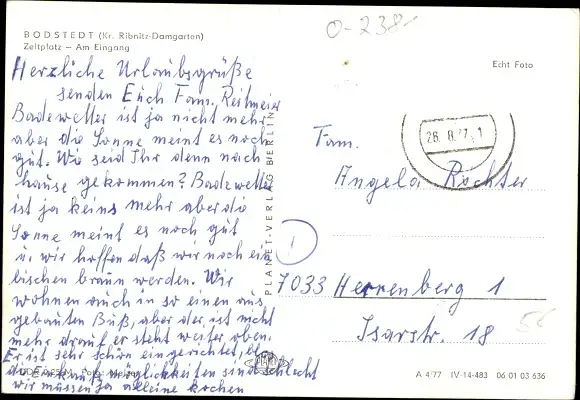 O-238
BODSTEDT (Kr. Ribnitz-Damgarten)
Zeltplatz – Am Eingang
Echt Foto
Herzliche Urlaubsgrüße
senden Euch Fam. Reitmeier
Badewetter ist ja nicht mehr
aber die Sonne meint es noch
gut. Wo seid Ihr denn nach
hause gekommen? Badewetter
ist ja keins mehr aber die
Sonne meint es noch gut
u. wir hoffen daß wir noch ein
bischen braun werden. Wir
wohnen auch in so einen aus
gebauten Buß, aber der ist nicht
mehr drauf er steht weiter oben.
Er ist sehr schön eingerichtet,
die Einkaufmöglichkeiten sind schlecht
wir müssen ja alleine kochen
PLANET-VERLAG BERLIN
26.8.77
Fam.
Angela Richter
1
7033 Herrenberg 1
Isarstr. 18
A 4/77 IV-14-483 06 01 03 636